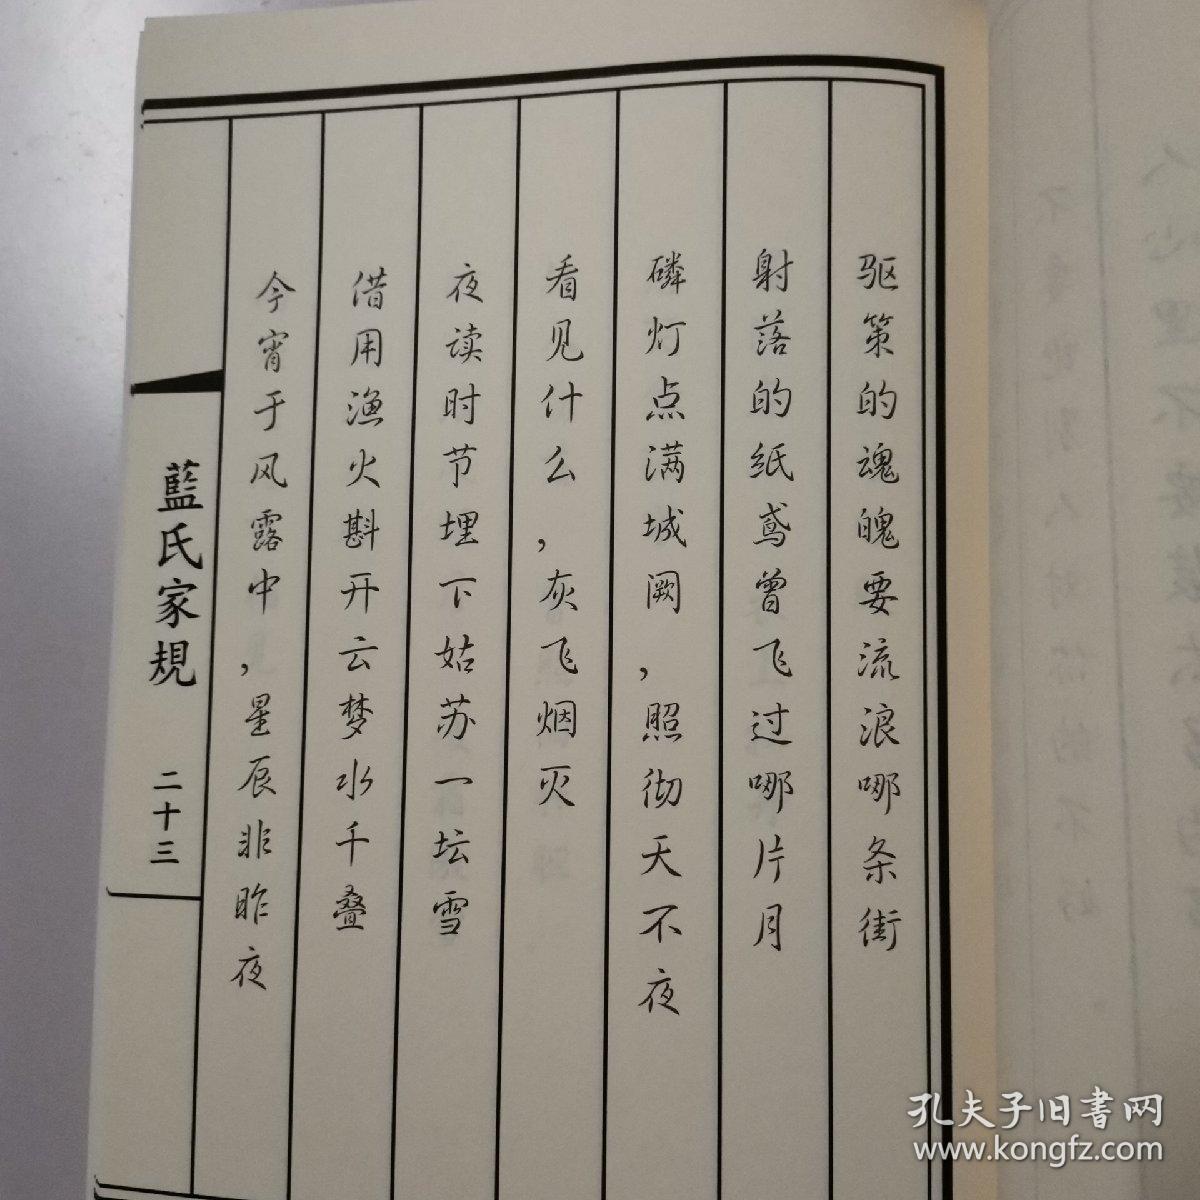 驱策的魂魄要流浪哪条街
射落的纸鸢曾飞过哪片月
磷灯点满城阙，照彻天不夜
看见什么，灰飞烟灭
夜读时节埋下姑苏一坛雪
借用渔火斟开云梦水千叠
今宵于风露中，星辰非昨夜
藍氏家規
二十三
孔夫子旧書网
www.kongfz.com